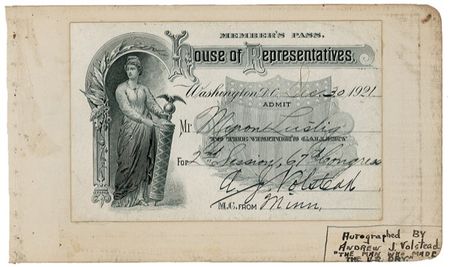 MEMBER'S PASS.
House of Representatives,
Washington, D.C. Dec. 20 1921
ADMIT
Mr. Myron Lustig
TO THE VISITOR'S GALLERY
For 2nd Session, 67th Congress
A. J. Volstead
M.C. FROM Minn.
Autographed By
Andrew J. Volstead
"THE MAN WHO MADE
THE U.S. DRY"